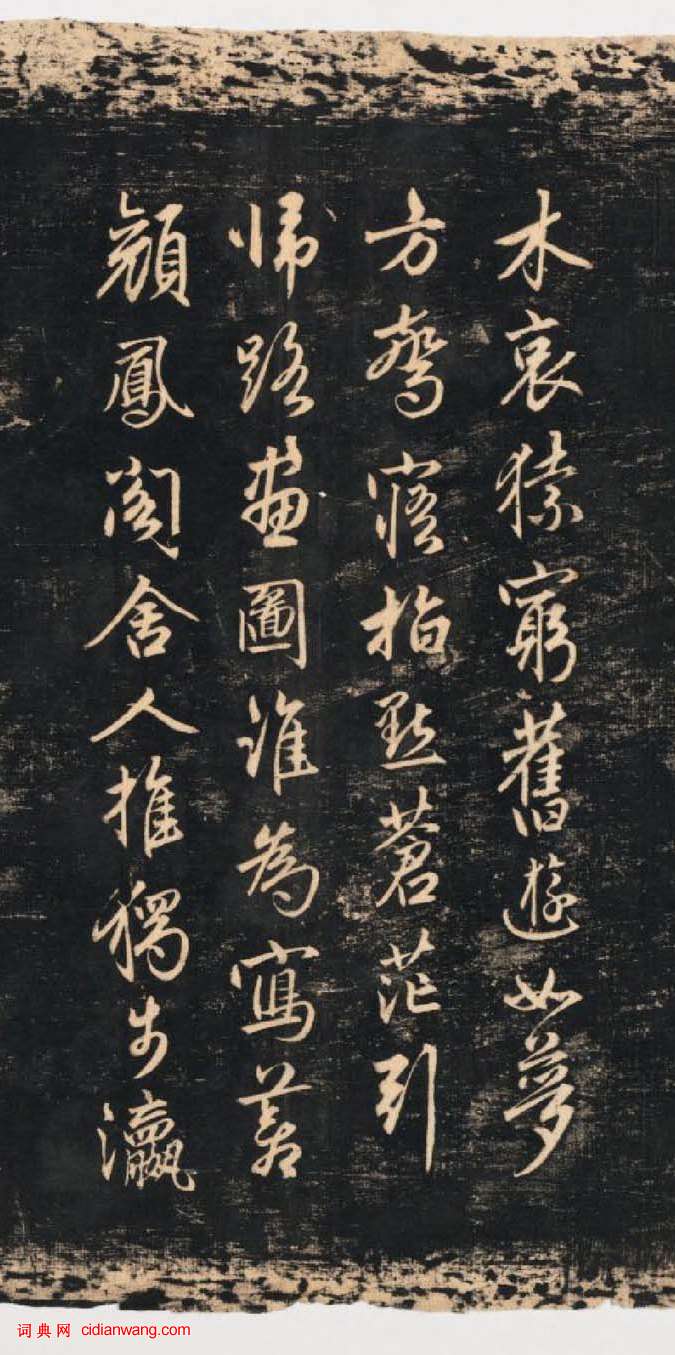 木哀猿窮舊遊如夢
方驚寤指點蒼茫引
歸路畫圖誰為寫蒼
顏鳳閣舍人推獨步瀛
词典网 cidianwang.com